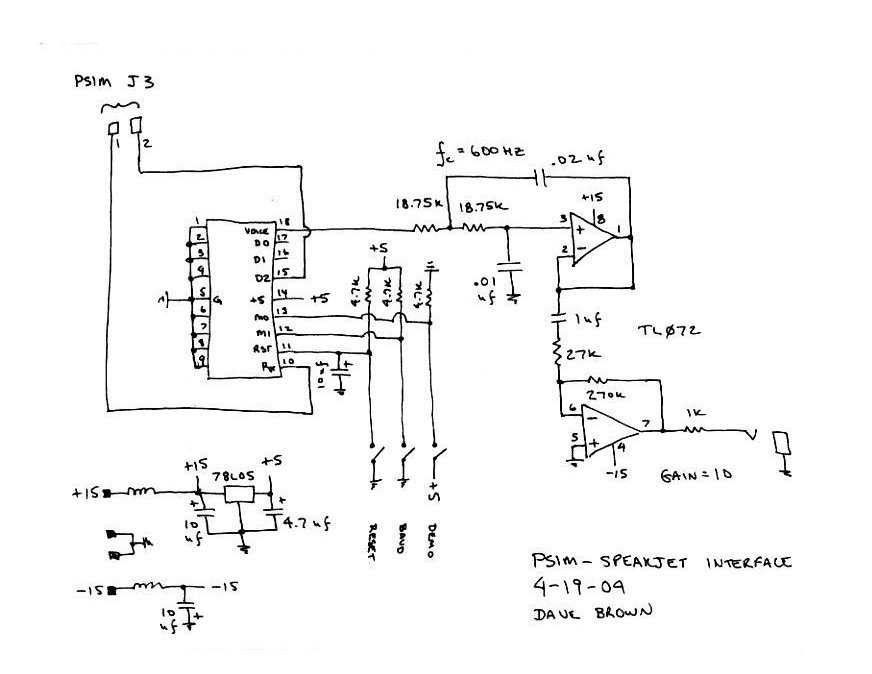 PSIM J3
1 2
fc = 600 HZ
.02 uf
18.75K 18.75K
+15
3 + 8 1
2 -
.01
uf
1 VOICE 18
2 D0 17
3 D1 16
4 D2 15
5 G +5 14 +5
6 M0 13
7 M1 12
8 RST 11
9 RX 10
+5
4.7K 4.7K 4.7K
10uf +
1uf
TLØ72
27K
270K
6 - 7 1K
5 + 4
-15
GAIN = 10
+5
RESET BAUD DEMO
+15 +15 78L05 +5
+ +
10
uf
4.7 uf
-15 -15
10
uf +
PSIM - SPEAKJET INTERFACE
4-19-04
DAVE BROWN